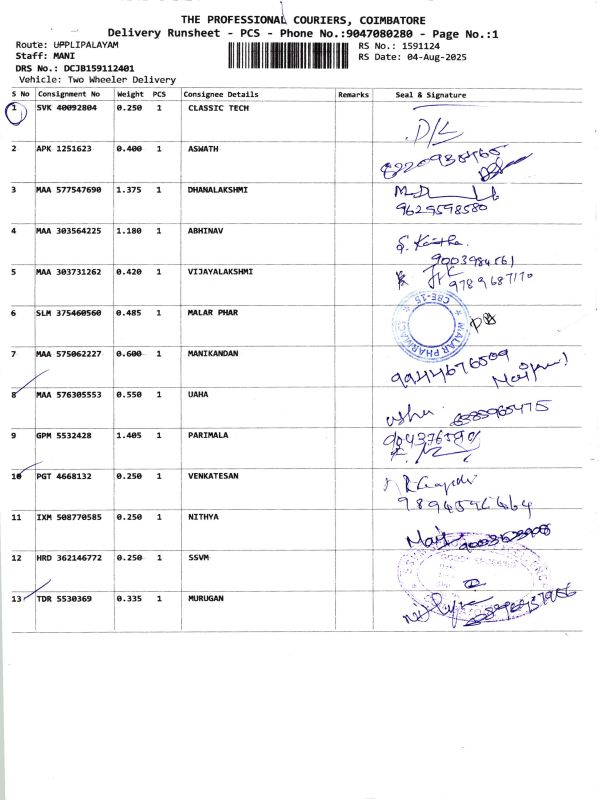 THE PROFESSIONAL COURIERS, COIMBATORE
Delivery Runsheet - PCS - Phone No.:9047080280 - Page No.:1
Route: UPPLIPALAYAM
RS No.: 1591124
Staff: MANI
RS Date: 04-Aug-2025
DRS No.: DCJB159112401
Vehicle: Two Wheeler Delivery
S No Consignment No Weight PCS Consignee Details Remarks Seal & Signature
1 SVK 40092804 0.250 1 CLASSIC TECH
D/L
2 APK 1251623 0.400 1 ASWATH
3 MAA 577547690 1.375 1 DHANALAKSHMI
9629598580
4 MAA 303564225 1.180 1 ABHINAV
9003984561
5 MAA 303731262 0.420 1 VIJAYALAKSHMI
9789687170
6 SLM 375460560 0.485 1 MALAR PHAR
MALAR PHARMACY CBE-15
7 MAA 575062227 0.600 1 MANIKANDAN
9944676509
8 MAA 576305553 0.550 1 UAHA
usha 6385965475
9 GPM 5532428 1.405 1 PARIMALA
10 PGT 4668132 0.250 1 VENKATESAN
11 IXM 508770585 0.250 1 NITHYA
12 HRD 362146772 0.250 1 SSVM
13 TDR 5530369 0.335 1 MURUGAN